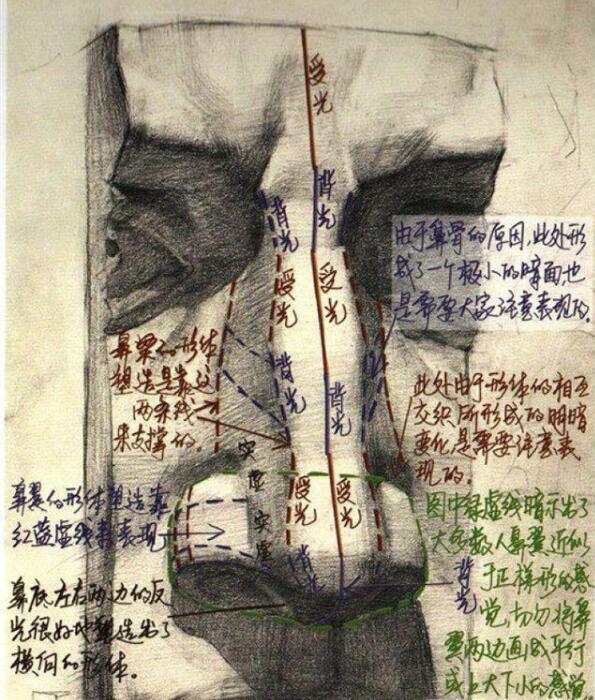 受光
背光
背光
由于鼻骨的原因,此处形
成了一个极小的暗面,也
是需要大家注意表现的。
受光
受光
鼻梁的形体
塑造是靠这
两条线
来支撑的。
背光
背光
此处由于形体的相互
交织所形成的明暗
变化是需要注意表
现的。
实
虚
实
虚
受光
受光
鼻翼的形体塑造靠
红蓝虚线来表现
图中绿虚线暗示出了
大多数人鼻翼近似
于正梯形的感
觉,切勿将鼻
翼两边画成平行
或上大下小的感觉
背光
背光
鼻底左右两边的反
光很好地塑造出了
横向的形体。